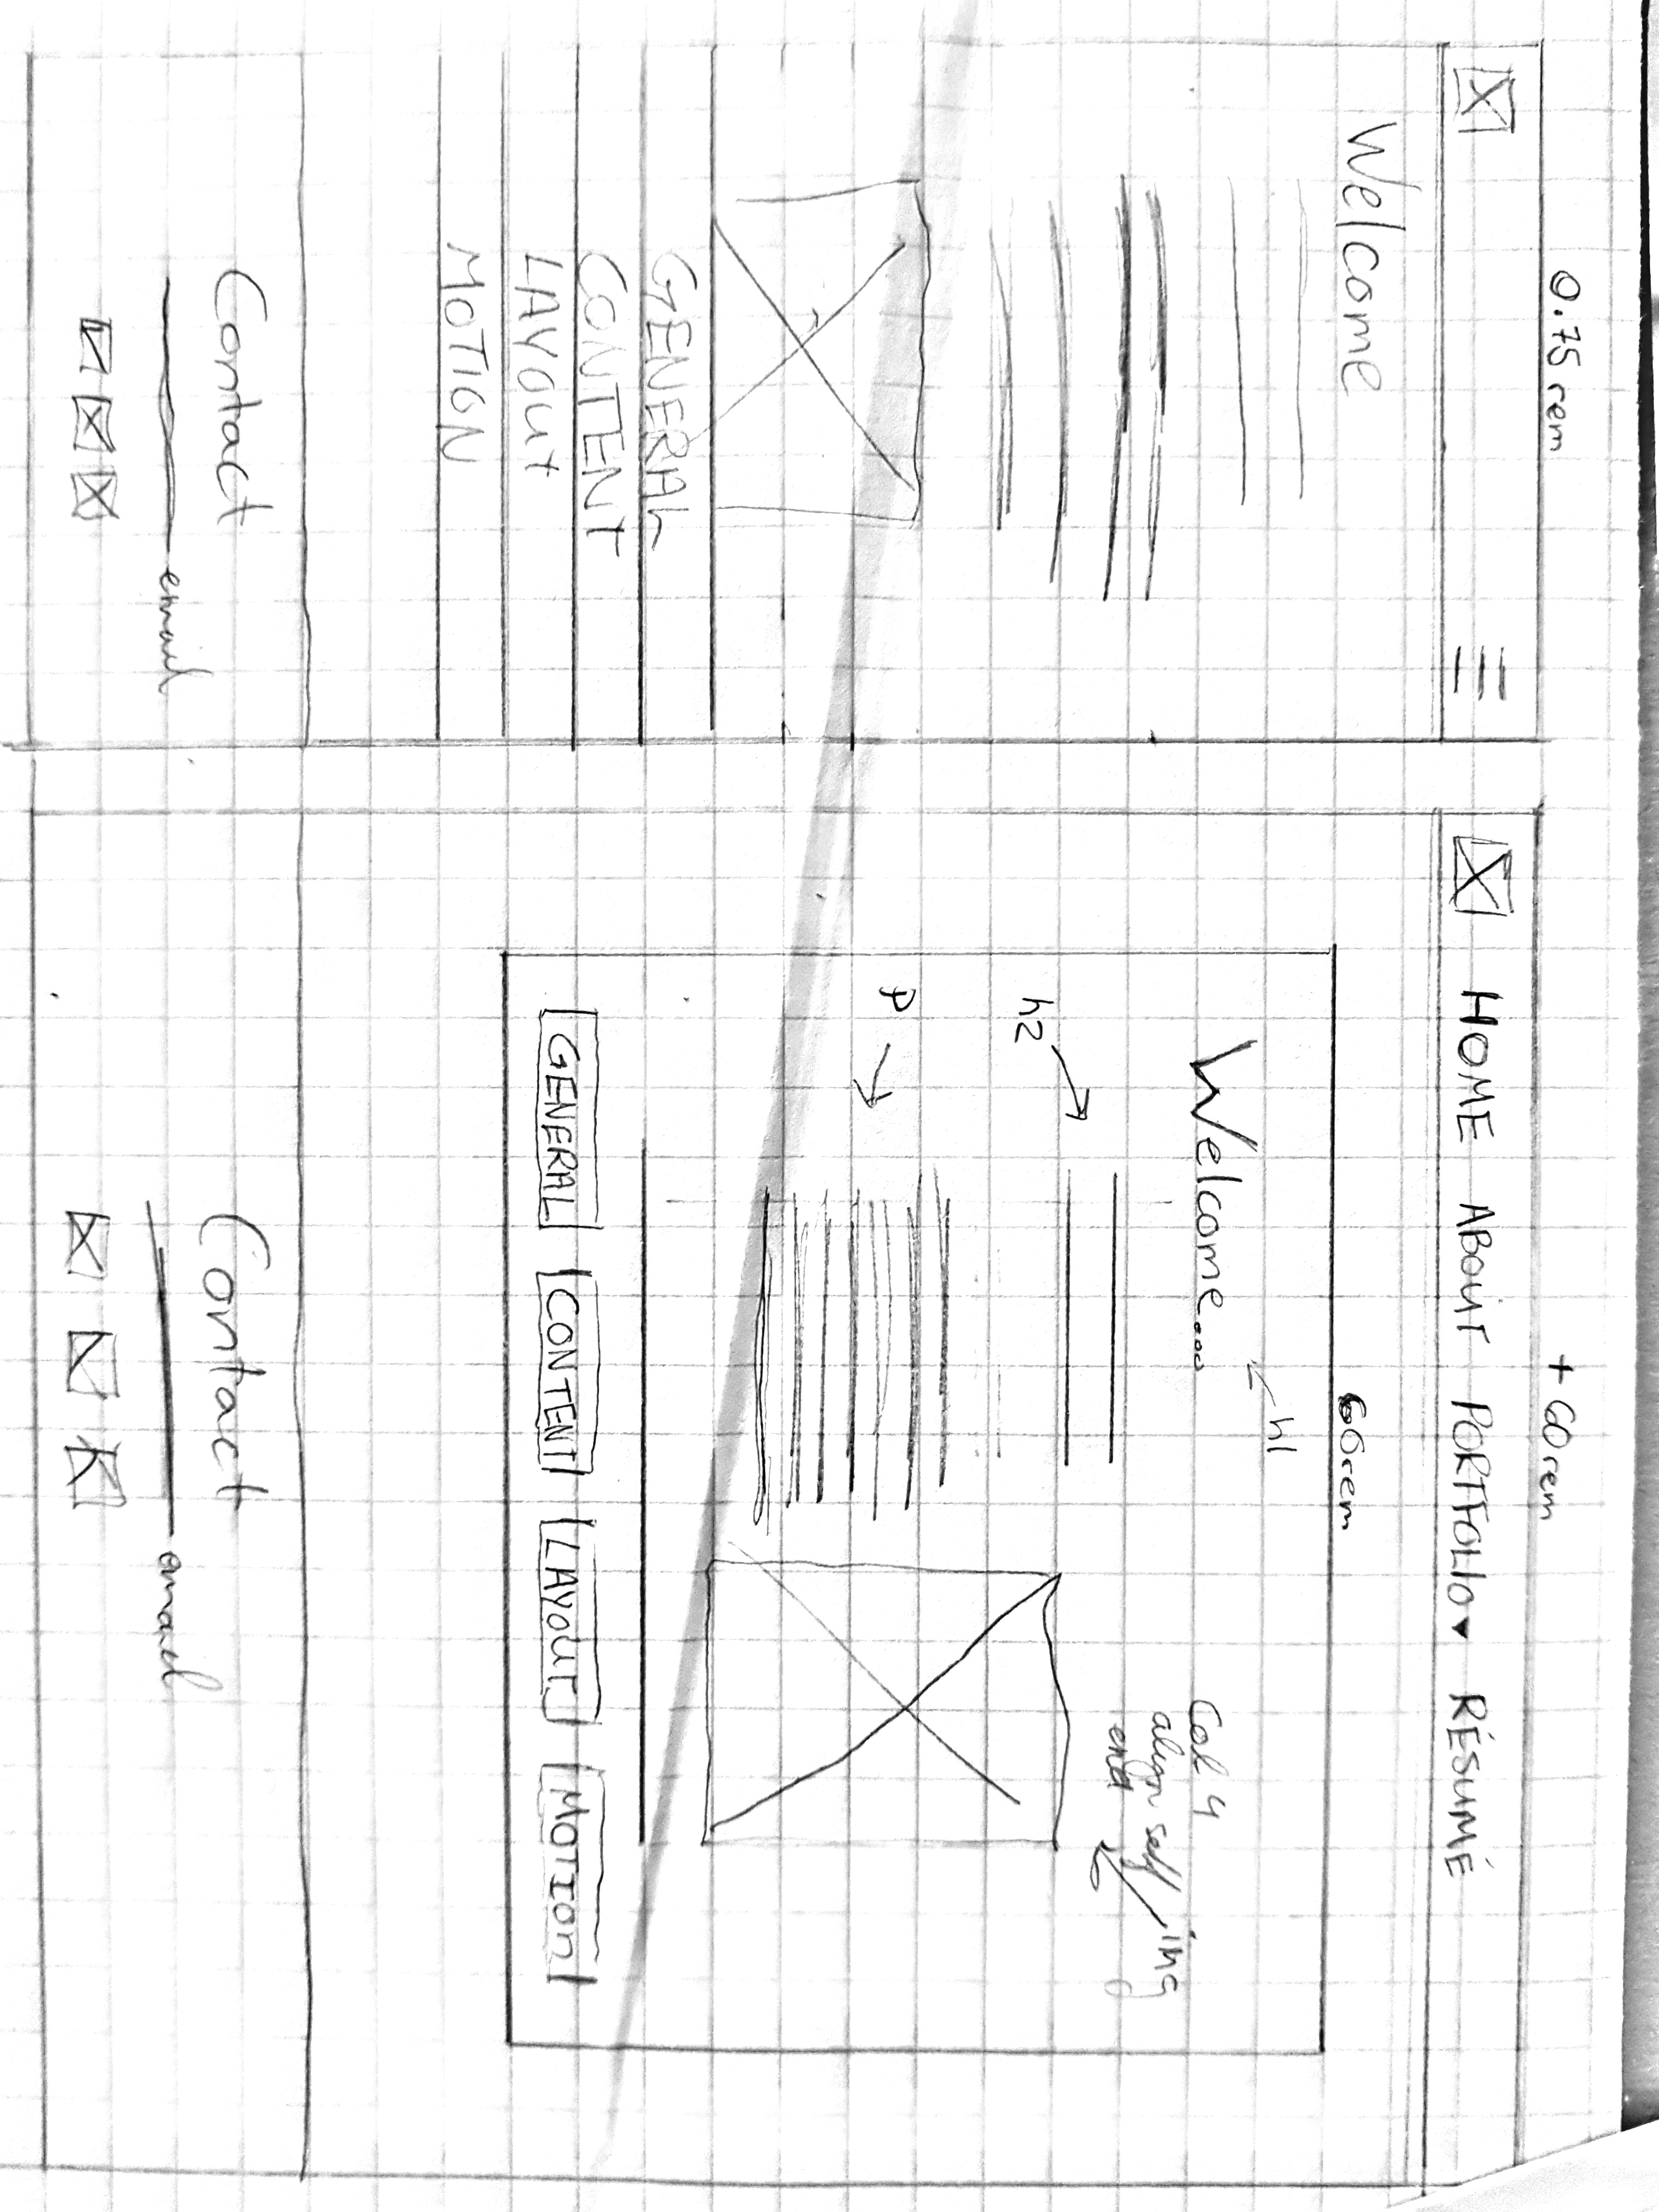 0.75 rem
Welcome
GENERAL
CONTENT
LAYOUT
MOTION
Contact
email
+ 60rem
HOME ABOUT PORTFOLIO▾ RÉSUMÉ
60rem
h1
Welcome...
Col 4
align self/img
end
h2
p
GENERAL CONTENT LAYOUT MOTION
Contact
email